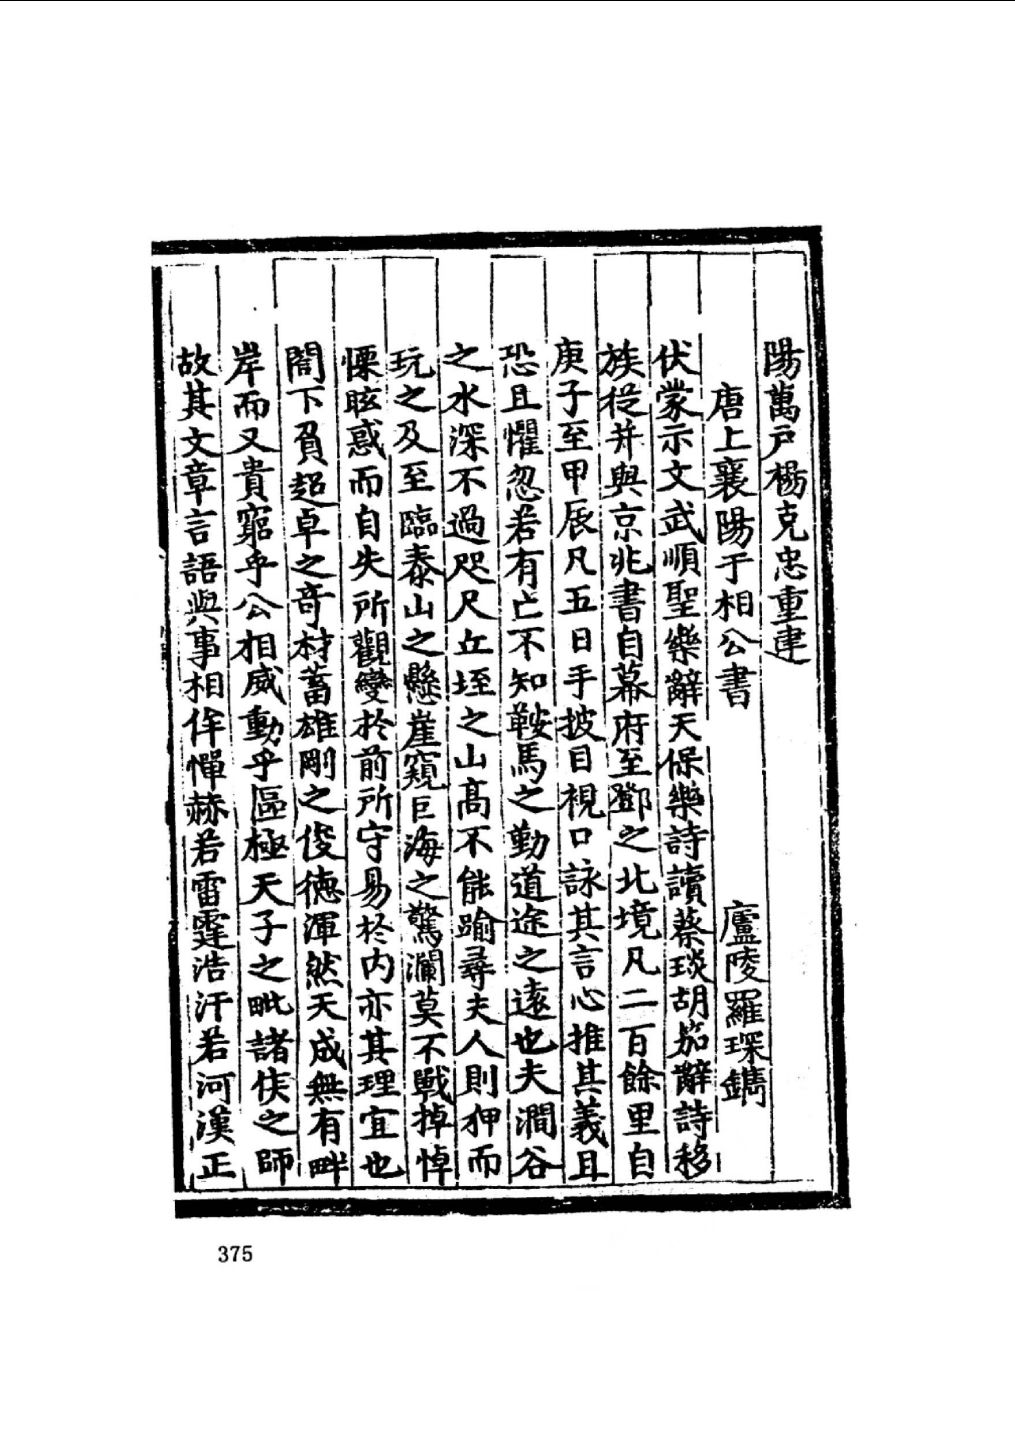 陽萬戶楊克忠重建
唐上襄陽于相公書　廬陵羅琛鐫
伏蒙示文武順聖樂辭天保樂詩讀蔡琰胡笳辭詩移
族從并與京兆書自幕府至鄧之北境凡二百餘里自
庚子至甲辰凡五日手披目視口詠其言心推其義且
恐且懼忽若有亡不知鞍馬之勤道途之遠也夫澗谷
之水深不過咫尺丘垤之山高不能踰尋夫人則狎而
玩之及至臨泰山之懸崖窺巨海之驚瀾莫不戰掉悼
慄眩惑而自失所觀變於前所守易於內亦其理宜也
閤下負超卓之奇材蓄雄剛之俊德渾然天成無有畔
岸而又貴窮乎公相威動乎區極天子之毗諸侯之師
故其文章言語與事相侔憚赫若雷霆浩汗若河漢正
375